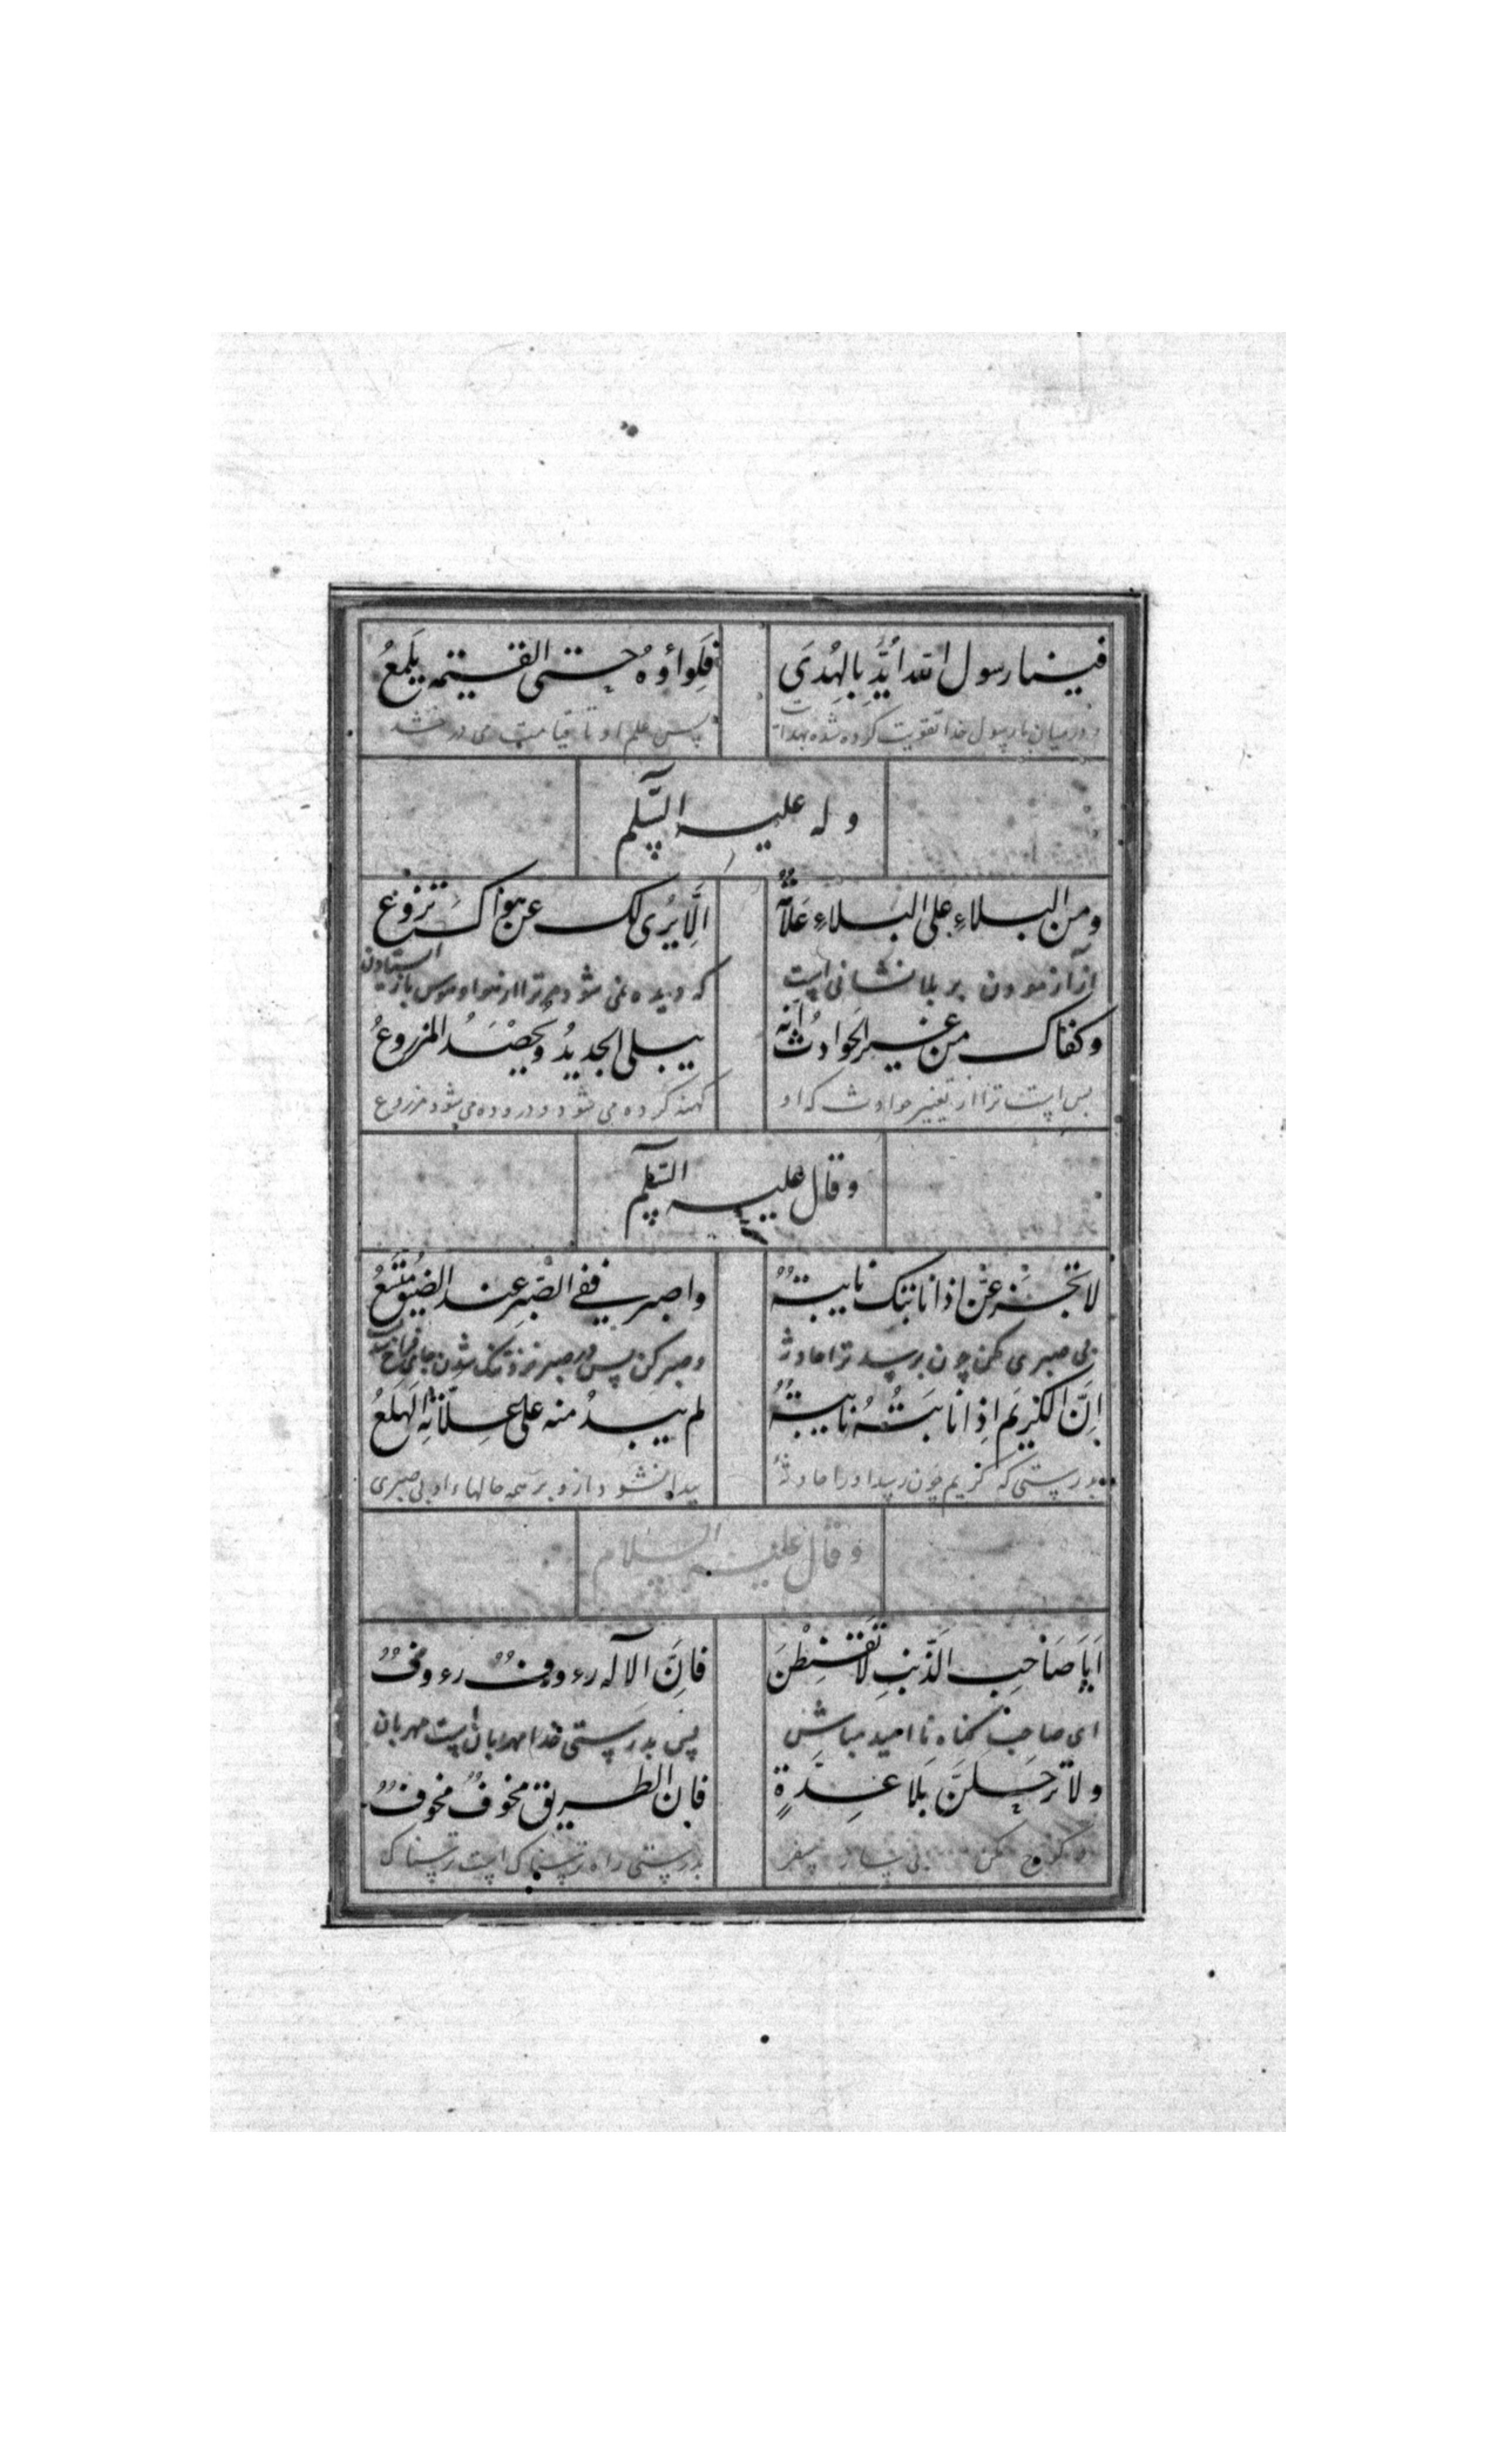 فینا رسول الله اُیِّدَ بِالهُدَی فَلِواؤُهُ حتی القیمه یَلمَعُ
و در میان ما رسول خدا تقویت کرده شده بهدایت پس علم او تا قیامت می درخشد
و له علیه السّلم
ومن البلاءِ علی البَلاءِ عَلامَةٌ اَلّا یُری لک عن هواکَ نزوعٌ
از آزمودن بر بلا نشانی است که دیده نمی شود مر ترا از هوا و هوس باز ایستادن
وکفاک من غیر الحوادثِ اَنَّه یبلی الجدیدُ وَیُحْصَدُ المزروعُ
بس است ترا از تغییر حوادث که او کهنه کرده می شود و دروده می شود مزروع
و قال علیه السّلم
لا تجزَعَنَّ اذا نابتک نایبةٌ واصبر ففی الصَّبرِ عند الضیقِ مُتَّسَعُ
بی صبری مکن چون برسد ترا حادثه و صبر کن پس در صبر نزد تنک شدن جای فراخ است
اِنَّ الکَریمَ اِذا نابَتْهُ نایبةٌ لم یبدُ منه علی عِلّاتِهِ الهَلَعُ
بدرستی که کریم چون رسد او را حادثه پیدا نشود از و بر همه حالهاء او بی صبری
و قال علیه السلام
اَیَا صَاحِبَ الذَّنبِ لا تَقنَطَنَ فَاِنَّ الآله رءوفٌ رءوفٌ
ای صاحب کناه نا امید مباش پس بدرستی خدا مهربان است مهربان
ولا ترحلَنَّ بَلا عِدَّةٍ فان الطریق مخوفٌ مخوفٌ
و کوچ مکن بی ساز سفر بدرستی راه ترسناک است ترسناک